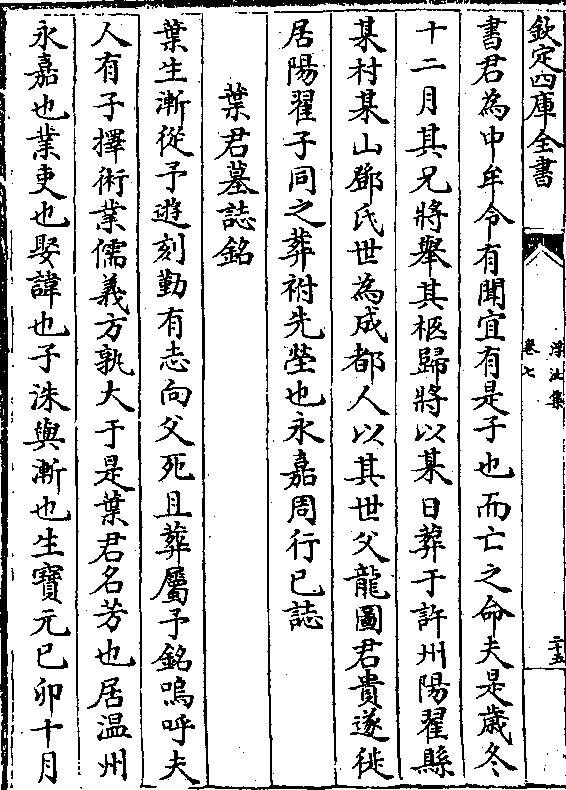 欽定四庫全書
浮沚集
卷七
二十五
書君為中牟令有聞宜有是子也而亡之命夫是歲冬
十二月其兄將舉其柩歸將以某日葬于許州陽翟縣
某村某山鄧氏世為成都人以其世父龍圖君貴遂徙
居陽翟子同之葬祔先塋也永嘉周行已誌
葉君墓誌銘
葉生漸從予遊刻勤有志向父死且葬屬予銘嗚呼夫
人有子擇術業儒義方孰大于是葉君名芳也居温州
永嘉也業吏也娶諱也子洙與漸也生寶元已卯十月